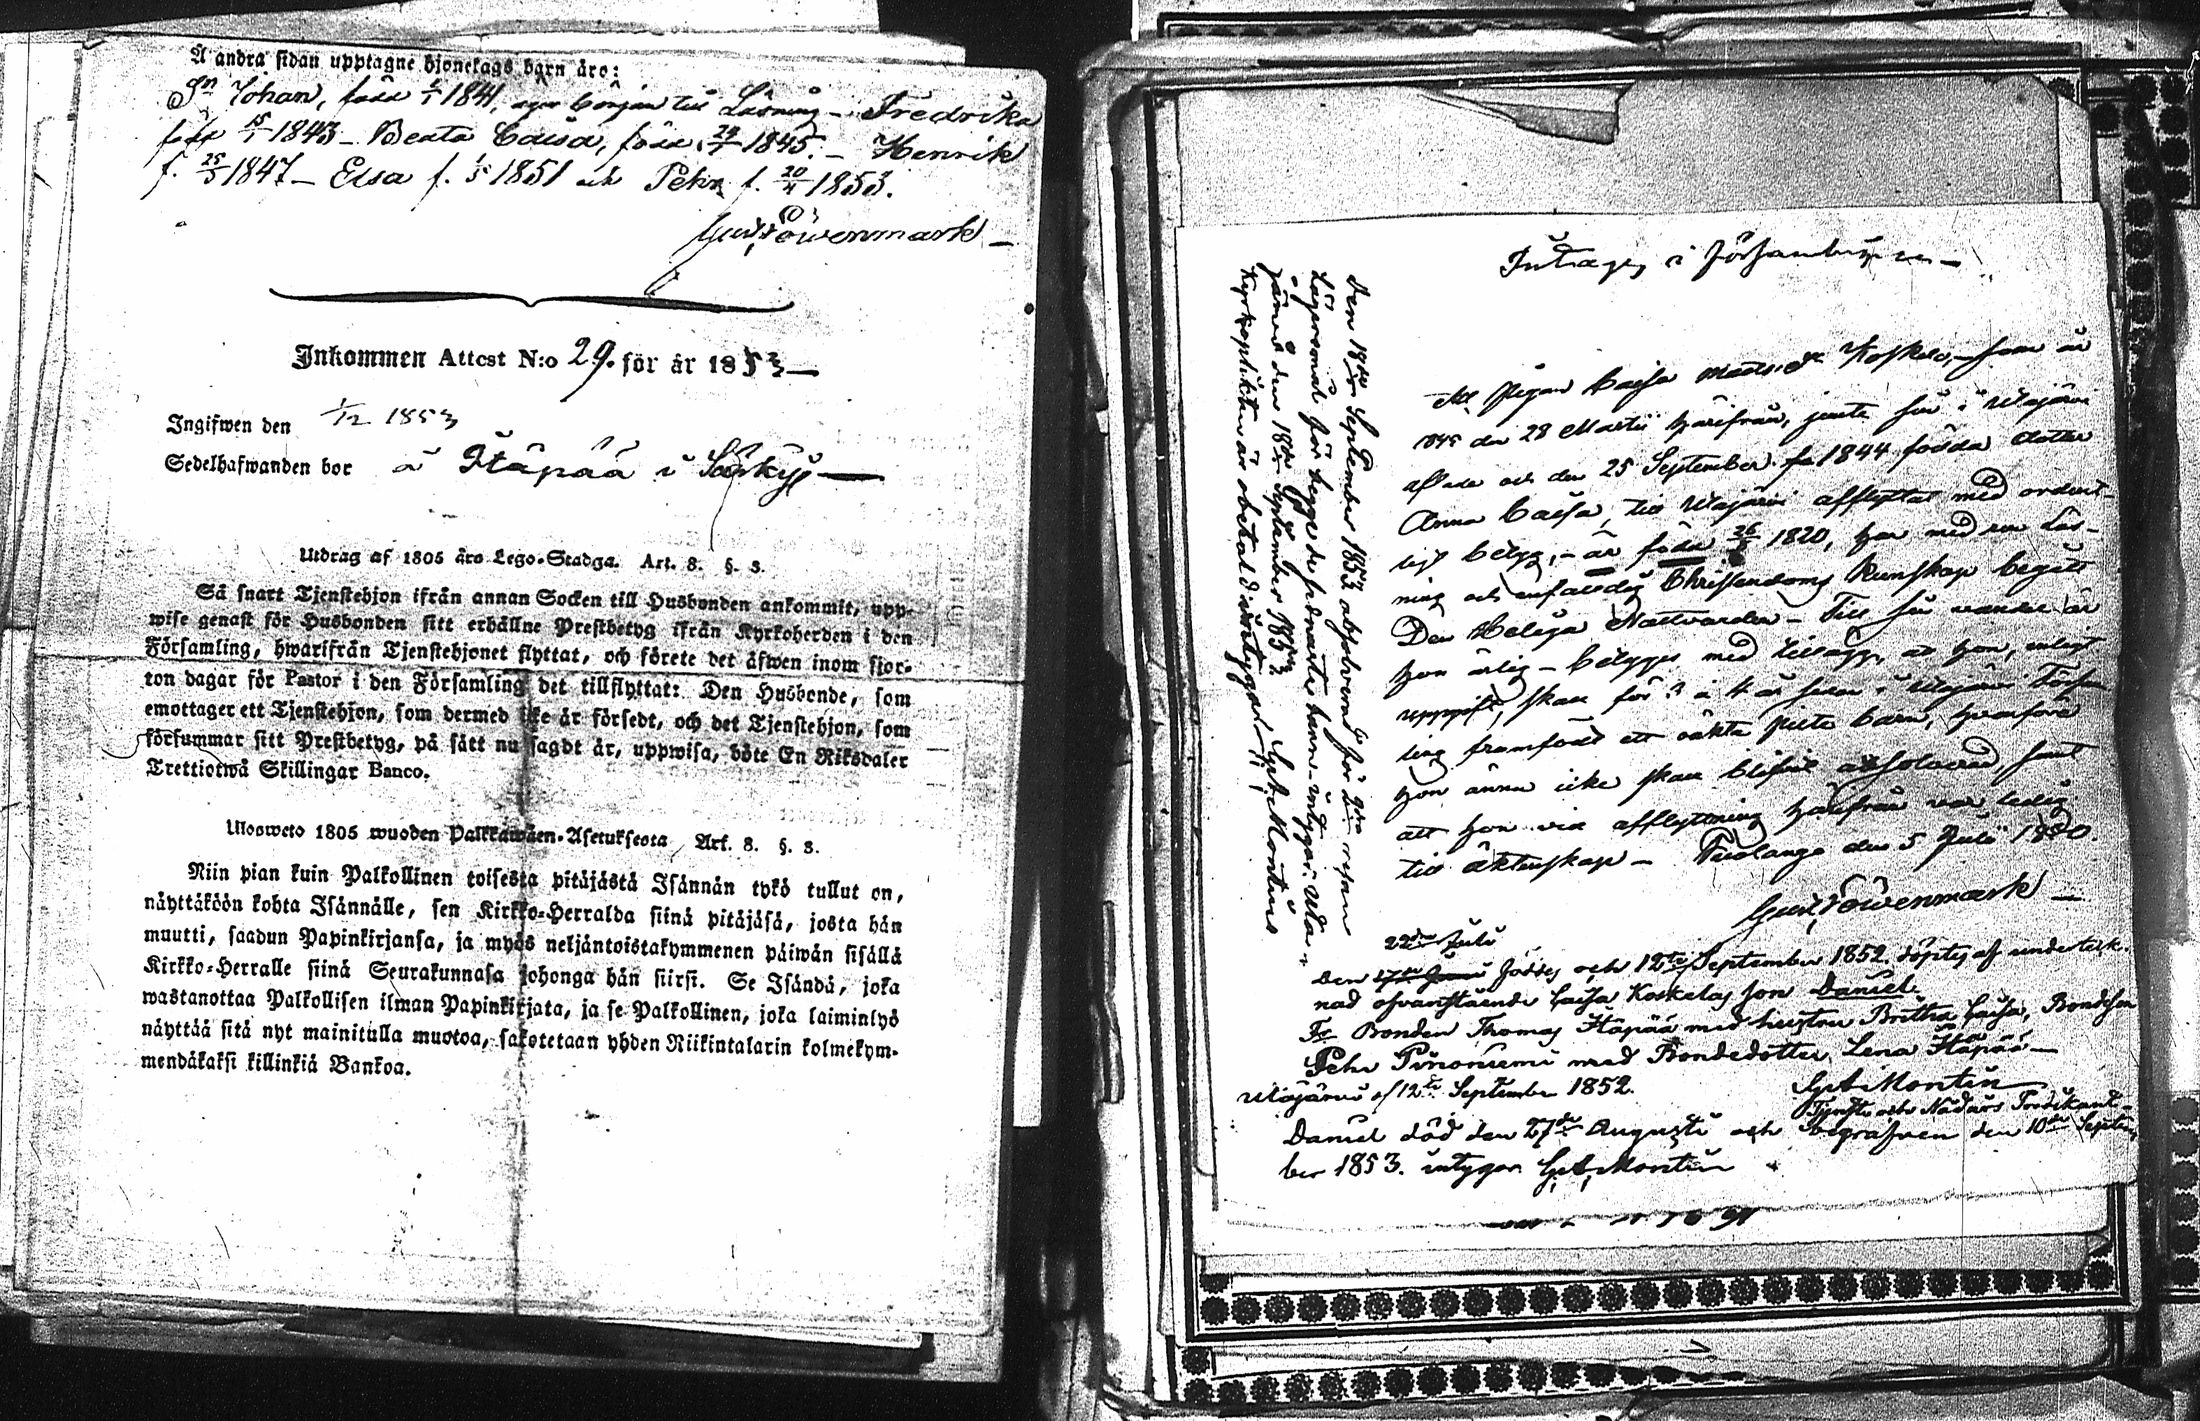 Å andra sidan upptagne hjonelags barn äro:
Sn Johan, född 1/1 1841, eger början till Läsning – Fredrika
född 15/1 1843 – Beata Caisa, född 24/7 1845. – Henrik
f. 25/3 1847 – Elsa f. 1/5 1851 och Pehr f. 20/4 1853.
Gust. Löwenmark –
Inkommen Attest N:o 29. för år 1853 –
Ingifwen den 1/12 1853
Sedelhafwanden bor å Itäpää i Säräkyl –
Utdrag af 1805 års Lego-Stadga. Art. 8. §. 3.
Så snart Tjenstehjon ifrån annan Socken till Husbonden ankommit, upp-
wise genast för Husbonden sitt erhållne Prestbetyg ifrån Kyrkoherden i den
Församling, hwarifrån Tjenstehjonet flyttat, och förete det äfwen inom fjor-
ton dagar för Pastor i den Församling det tillflyttat: Den Husbonde, som
emottager ett Tjenstehjon, som dermed icke är försedt, och det Tjenstehjon, som
försummar sitt Prestbetyg, på sätt nu sagdt är, uppwisa, böte En Riksdaler
Trettiotwå Skillingar Banco.
Uloswеto 1805 wuoden Palkkawäen-Asetuksesta, Art. 8. §. 3.
Niin pian kuin Palkollinen toisesta pitäjästä Isännän tykö tullut on,
näyttäköön kohta Isännälle, sen Kirkko-Herralda siinä pitäjäsä, josta hän
muutti, saadun Papinkirjansa, ja myös neljäntoistakymmenen päiwän sisällä
Kirkko-Herralle siinä Seurakunnasa johonga hän siirsi. Se Isändä, joka
wastanottaa Palkollisen ilman Papinkirjata, ja se Palkollinen, joka laiminlyö
näyttää sitä nyt mainitulla muotoa, sakotetaan yhden Riikintalarin kolmekym-
mendäkaksi killinkiä Bankoa.
Intages i Församlingen –
Att Pigan Caisa Matts dr Koskela, – som är
1845 den 28 Martii härifrån, jemte sin i Utajärvi
aflade och den 25 September 1844 födda dotter
Anna Caisa, till Utajärvi afflyttat med ordent-
ligt betyg, – är född 26/ 1820, har med ren Läs-
ning och enfaldig Christendoms kunskap begått
Den Heliga Nattvarden – Till sin vandel är
hon ärlig – betygges med tillägg, at hon, enligt
uppgift, skall för 3 à 4 år sedan i Utajärvi Förs-
ling framfödt ett oäkta piltebarn, hvarföre
hon ännu icke skall blifvit absolverad, samt
att hon vid afflyttning härifrån var ledig
till äktenskap – Puolango den 5 Julii 1850.
Gust. Löwenmark –
Den 18de September 1853 absolverad för 2dra resan
Lägersmål för begge de sednaste barn – intygar: Uta-
järvi den 18de September 1853.
Kyrkoplikten är obetald intygar G. A. Montin
22dra Julii
Den 17de Junii föddes och 12te September 1852 döptes af underteck-
nad ofvanstående Caisa Koskelas son Daniel.
Fr. Bonden Thomas Itäpää med hustru Britha Caisa, Bondeson
Pehr Piironiemi med Bondedotter Lena Itäpää –
Utajärvi d 12te September 1852.
G. A. Montin
Tjenste och Nådårs Predikant
Daniel död den 27de Augusti och begrafven den 10de Septem-
ber 1853. intygar G. A. Montin